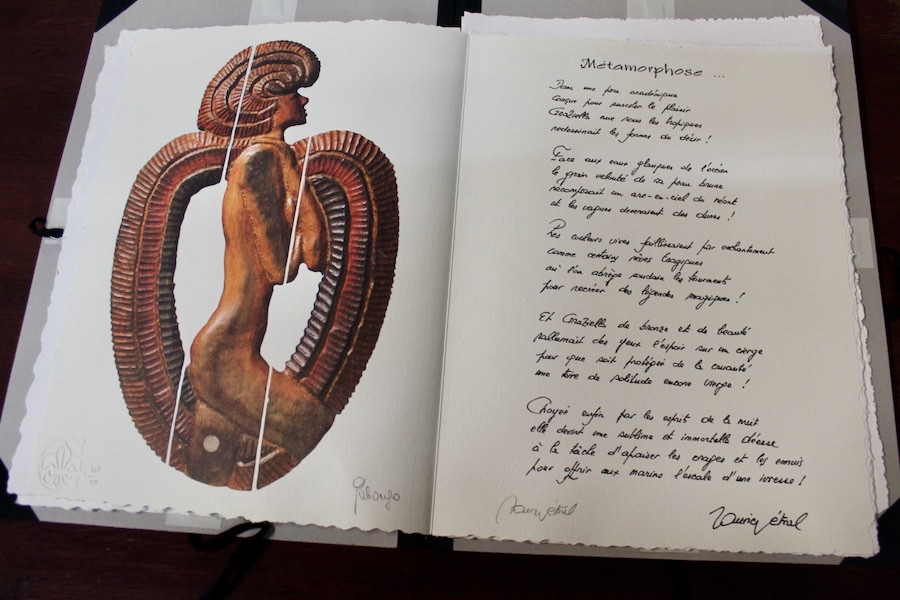 Métamorphose ...
Dans une pose académique
conçue pour susciter le plaisir
Graziella nue sous les tropiques
redessinait les formes du désir !
Face aux eaux glauques de l'océan
le grain velouté de sa peau brune
recomposait un arc-en-ciel du néant
et les vagues devenaient des dunes !
Les couleurs vives faiblissaient par enchantement
comme certains rêves tragiques
où l'on abrège soudain les tourments
pour recréer des légendes magiques !
Et Graziella de bronze et de beauté
rallumait des yeux l'espoir sur un cierge
pour que soit protégée de la cruauté
une terre de solitude encore vierge !
Choyée enfin par les esprits de la nuit
elle devint une sublime et immortelle déesse
à la tâche d'apaiser les orages et les ennuis
pour offrir aux marins l'escale d'une ivresse !